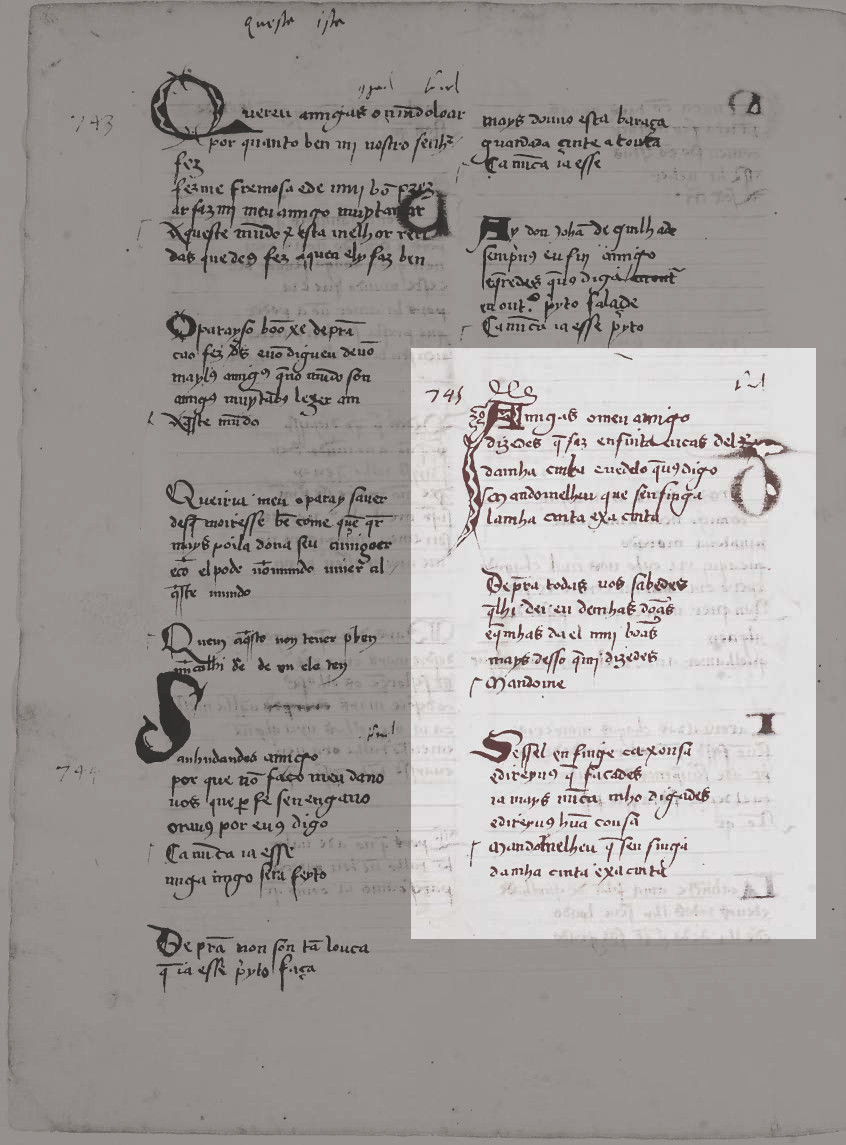 Queste iste
743
Quereu amigas o mũdo loar
por quanto ben mj nostro senhr
fez
fezme fremosa ede muj bõ prez
ar faz mj meu amigo muyta
Aqueste mũdo x esta melhor ren
das que deꝯ fez aquen ely faz ben
O parayso boo xe de prã
cao fez dꝯ enõ digueu de nõ
mayl9 amigꝯ q̃ no mũdo son
amigꝯ muytãbꝯ lezer am
Aq̃ste mũdo
Queiria meu o paray saver
desq̃ moiresse bẽ come quẽ qr
mays poila dona seu amigoer
ecõ el pode nõ mũdo viuer al
q̃ste mundo
Quem aq̃sto non tever p ben
744
Sanhudandes amigo
por que nõ faço meu dano
uos que per fe sen engano
orauꝯ por euꝯ digo
Ca nũca ia esse
miga migo sera feyto
De prã non sõn tã louca
q̃ ia esse pyto faça
mays douuo esta baraça
guardada cinte a touca
Ca nũca ia esse
Ay don Johã de guilhade
senprꝯ eu fui amigo
en outº pyto falade
Ca nũca ia esse pyto
745
Amigas o meu amigo
dizedes q̃ faz enfinta
damha cinta euedelo quꝯ digo
Mandomelheu que sen finga
lamha cinta exa cinta
De prã todas uos sabedes
q̃lhi dei eu demhas dõas
eq̃ mhas da el muj bõas
mays desso q̃ mj dizedes
Mandome
Sessel enfinge ca xousa
edireyuꝯ q̃ facades
ia mays nũca mho digades
edireyuꝯ hũa cousa
Mandomelheu q̃ sen finga
damha cinta exa cinta